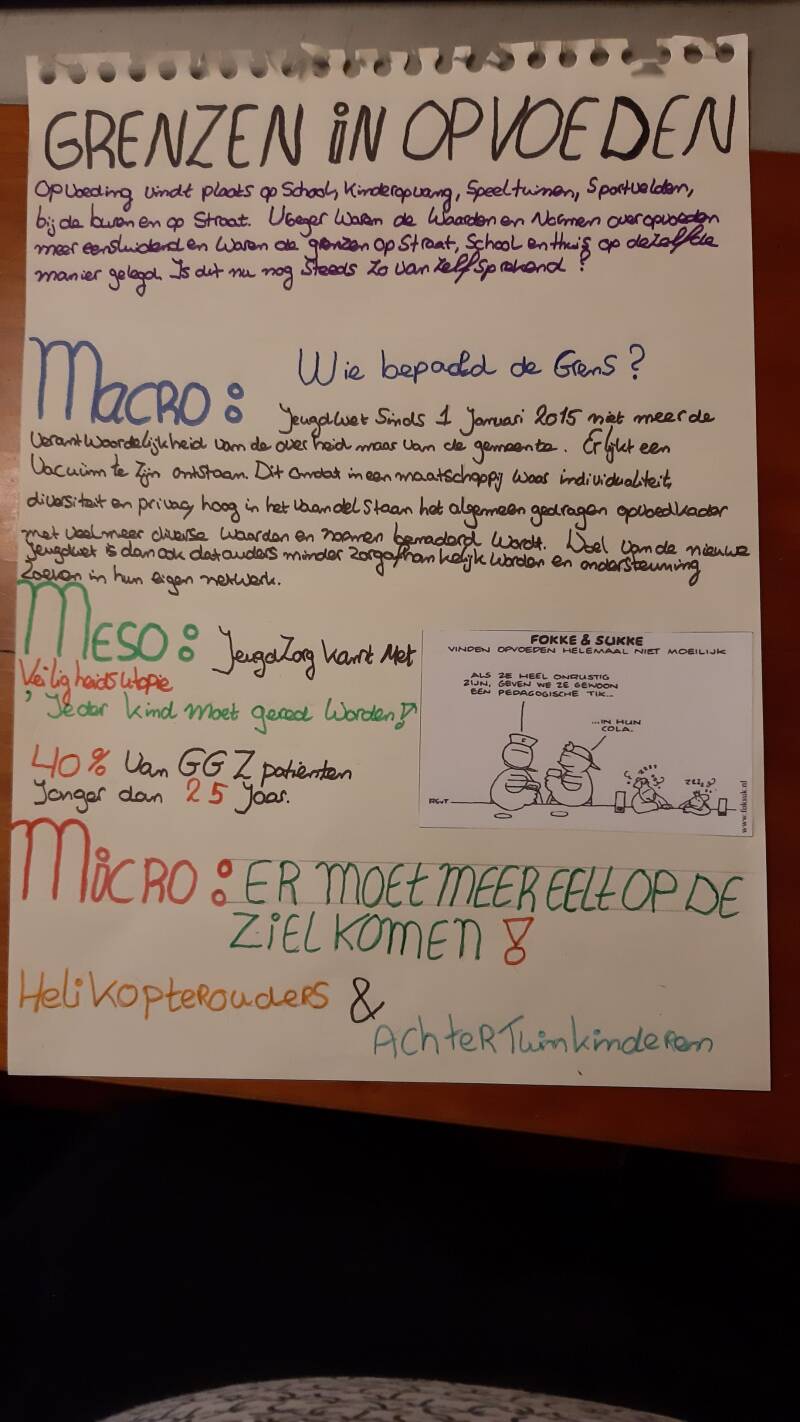 GRENZEN iN OPVOEDEN
Opvoeding vindt plaats op School, Kinderopvang, Speeltuinen, Sportvelden,
bij de buren en op Straat. Vroeger Waren de Waarden en Normen over opvoeden
meer eensluidend en Waren de grenzen op Straat, School en thuis op dezelfde
manier gelegd. Is dit nu nog Steeds Zo Van Zelf Sprekend?
MACRO:
Wie bepaald de Grens?
Jeugdwet Sinds 1 Januari 2015 niet meer de
Verantwoordelijkheid van de overheid maar van de gemeente. Er lijkt een
Vacuüm te Zijn ontstaan. Dit omdat in een maatschappij waar individualiteit,
diversiteit en privacy hoog in het Vaandel Staan het algemeen gedragen opvoedkader
met veel meer diverse waarden en normen benaderd wordt. Doel van de nieuwe
Jeugdwet is dan ook dat ouders minder zorgafhankelijk worden en ondersteuning
Zoeken in hun eigen netwerk.
MESO:
JeugdZorg Kamt Met
VeiligheidsUtopie
'Ieder Kind Moet gered Worden!'
40% Van GGZ patiënten
Jonger dan 25 Jaar.
FOKKE & SUKKE
VINDEN OPVOEDEN HELEMAAL NIET MOEILIJK
ALS ZE HEEL ONRUSTIG
ZIJN, GEVEN WE ZE GEWOON
EEN PEDAGOGISCHE TIK...
...IN HUN
COLA.
RGvT
ZZZZ
ZZZ
www.foksuk.nl
MiCRO: ER MOET MEER EELT OP DE
ZiEL KOMEN!
HeliKopterouders &
AchteRTuinkinderen